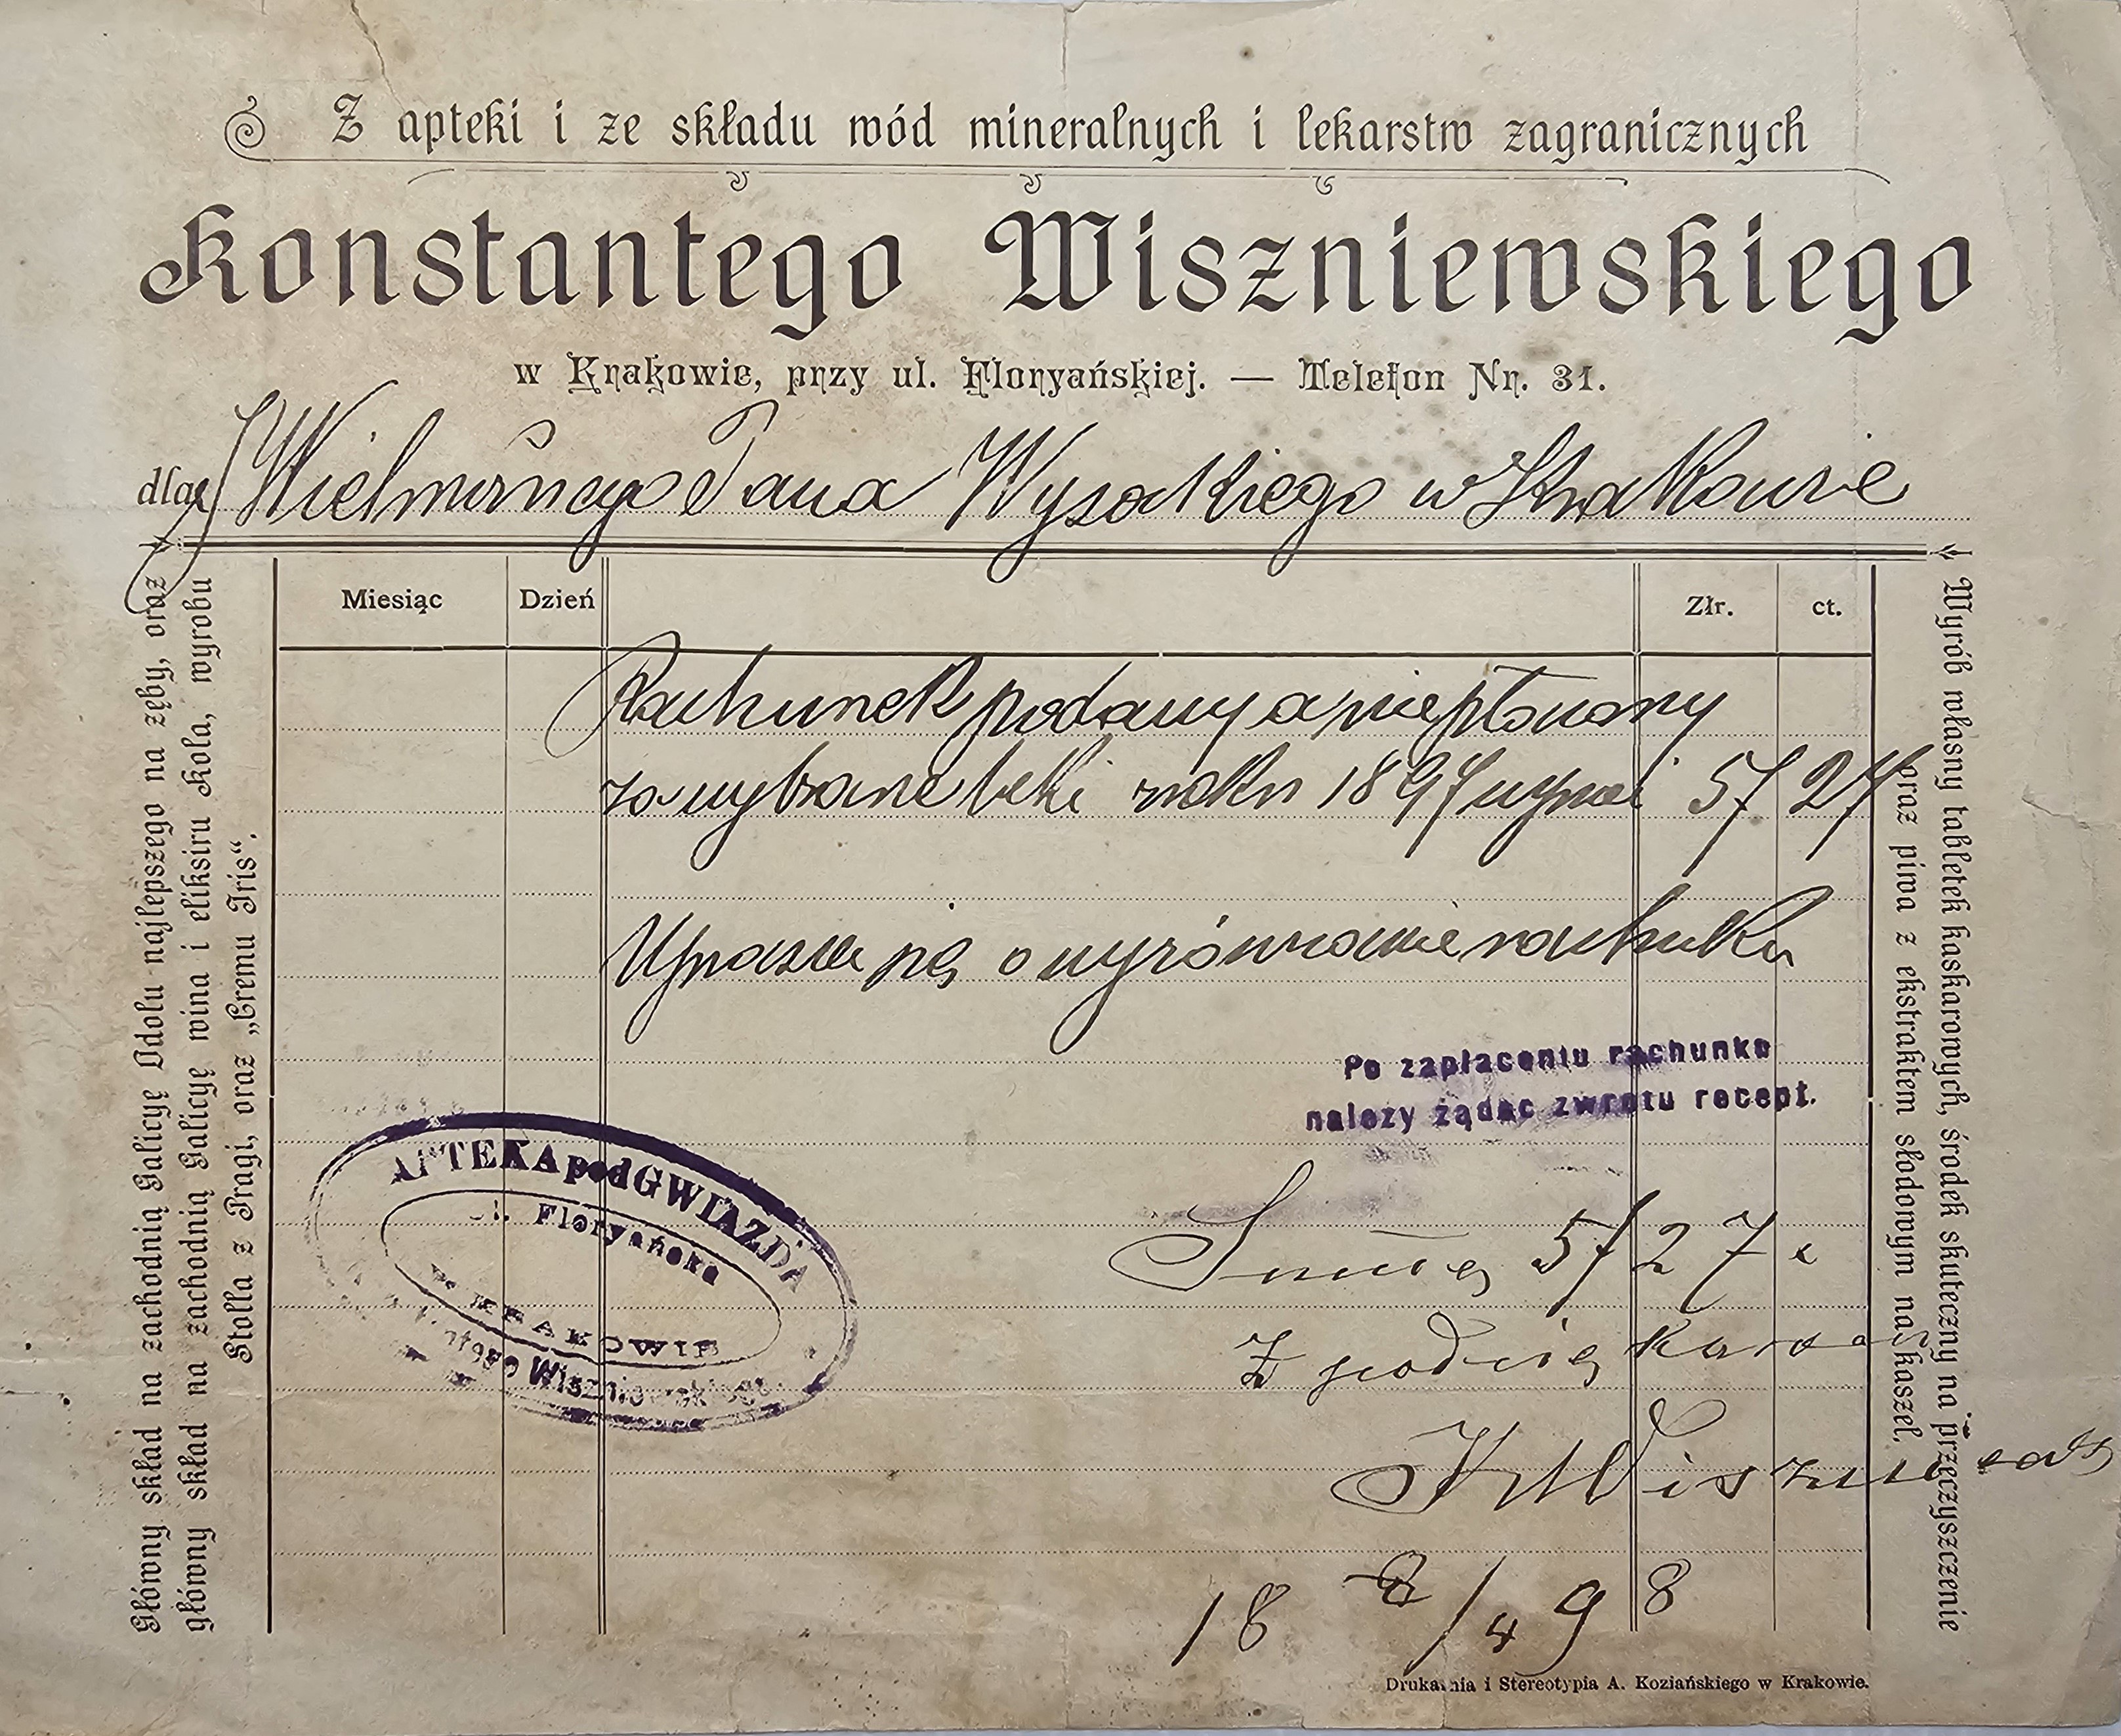 Z apteki i ze składu wód mineralnych i lekarstw zagranicznych
Konstantego Wiszniewskiego
w Krakowie, przy ul. Floryańskiej. — Telefon Nr. 31.
dla JWielmożnego Pana Wysockiego w Krakowie
Miesiąc Dzień Złr. ct.
Rachunek podany a niepłacony
za wybrane leki roku 1897 wynosi 5/ 27
Uprasza się o wyrównanie rachunku
Po zapłaceniu rachunku
należy żądać zwrotu recept.
APTEKA pod GWIAZDĄ
ul. Floryańska
w KRAKOWIE
Konstantego Wiszniewskiego
5/27
Z podziękowan
KWiszniewski
18 8/4 98
Główny skład na zachodnią Galicyę Odolu najlepszego na zęby, oraz
główny skład na zachodnią Galicyę wina i eliksiru Kola, wyrobu
Stolla z Pragi, oraz „Cremu Iris“.
Wyrób własny tabletek kaskarowych, środek skuteczny na przeczyszczenie
oraz piwa z ekstraktem słodowym na kaszel.
Drukarnia i Stereotypia A. Koziańskiego w Krakowie.